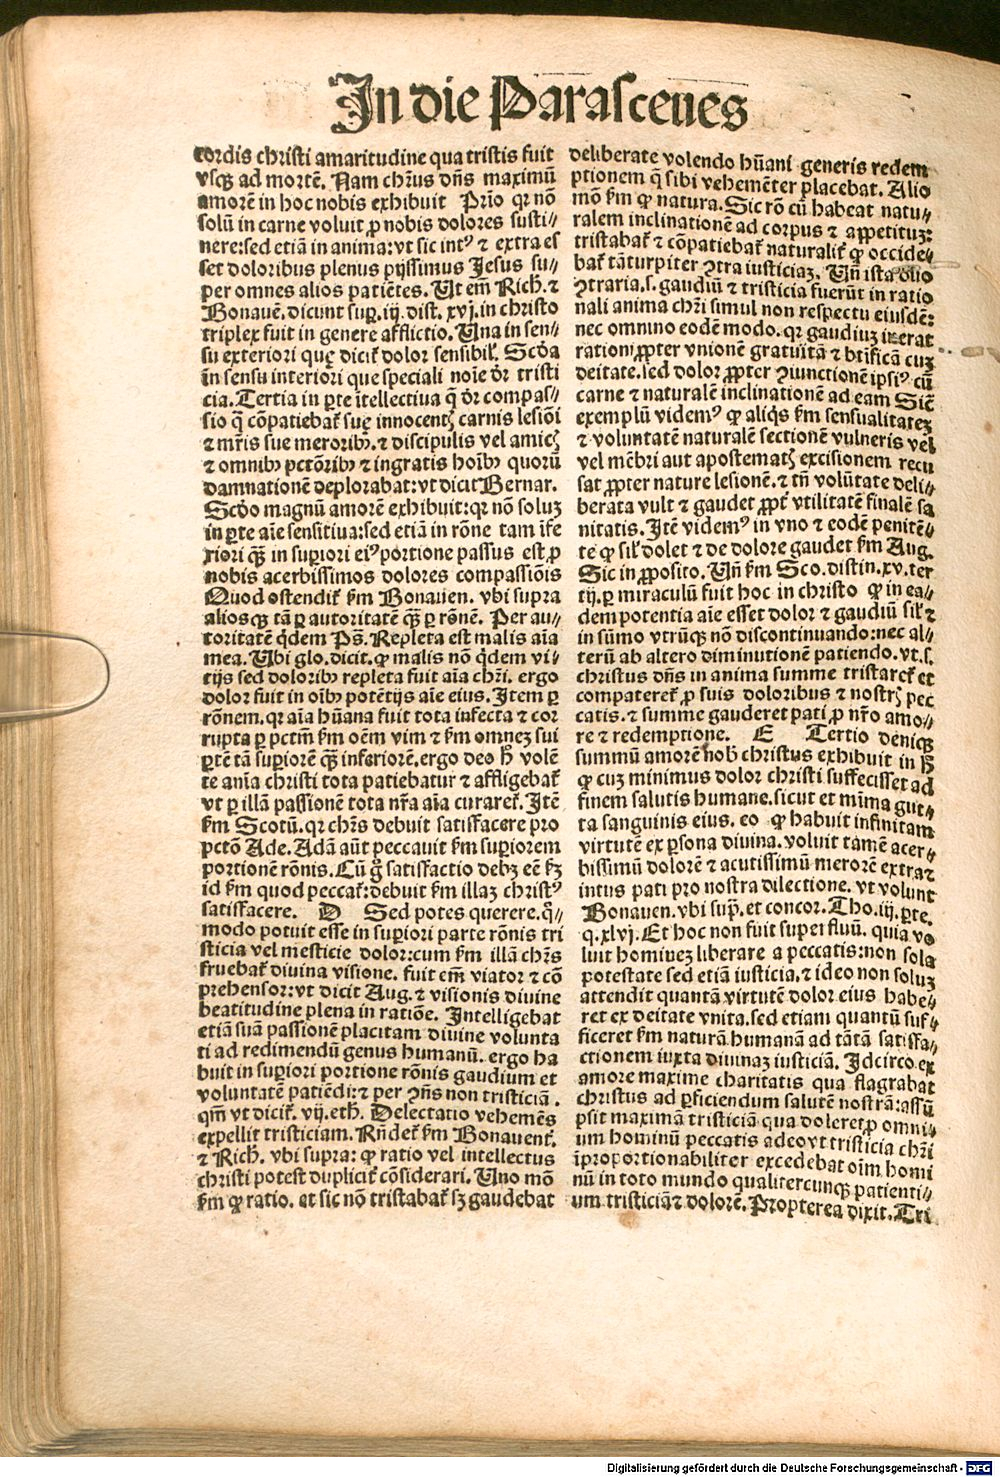 In die Parasceues
cordis christi amaritudine qua tristis fuit
vsqꝫ ad mortē. Nam chr̄us dn̄s maximū
amorē in hoc nobis exhibuit Prīo qꝛ nō
solū in carne voluit ꝓ nobis dolores susti⸗
nere:sed etiā in anima:vt sic intꝰ ⁊ extra es
set doloribus plenus pijssimus Jesus su⸗
per omnes alios patiētes. Ut em̄ Rich. ⁊
Bonauē. dicunt suꝑ. iij. dist. xvj. in christo
triplex fuit in genere afflictio. Una in sen⸗
su exteriori que dicit̄ dolor sensibil'. Scḋa
īn sensu interiori que speciali noīe dr̄ tristi
cia. Tertia in ꝑte ītellectiua q̄ dr̄ compas⸗
sio q̄ cōpatiebat̄ sue innocentꝭ carnis lesiōi
⁊ mr̄is sue meroribꝰ. ⁊ discipulis vel amicꝭ
⁊ omnibꝰ pctōribꝰ ⁊ ingratis hoībꝰ quorū
damnationē deplorabat:vt dicit Bernar.
Scḋo magnū amorē exhibuit:qꝛ nō soluꝫ
in ꝑte aīe sensitiua:sed etiā in rōne tam īfe
riori qꝫ̄ in suꝑiori eiꝰ portione passus est ꝓ
nobis acerbissimos dolores compassiōis
Quod ostendit̄ ẜm Bonauen. vbi supra
aliosqꝫ tā ꝑ autoritatē qꝫ̄ ꝑ rōnē. Per au⸗
toritatē q̇dem Ps̄. Repleta est malis aīa
mea. Ubi glo. dicit. ꝙ malis nō q̇dem vi⸗
tijs sed doloribꝰ repleta fuit aīa chr̄i. ergo
dolor fuit in oībꝰ potētijs aīe eius. Item ꝑ
rōnem. qꝛ aīa hūana fuit tota infecta ⁊ cor
rupta ꝑ pctm̄ ẜm oēm vim ⁊ ẜm omneꝫ sui
ꝑtē tā suꝑiorē qꝫ̄ inferiorē. ergo deo h̄ volē
te anīa christi tota patiebatur ⁊ affligebat̄
vt ꝑ illā passionē tota nr̄a aīa curaret̄. Itē
ẜm Scotū. qꝛ chr̄s debuit satisfacere pro
pctō Ade. Adā aūt peccauit ẜm suꝑiorem
portionē rōnis. Cū gͦ satisfactio debꝫ eē ẜꝫ
id ẜm quod peccat̄: debuit ẜm illaꝫ christꝰ
satisfacere. D Sed potes querere. q̄⸗
modo potuit esse in suꝑiori parte rōnis tri
sticia vel mesticie dolor:cum ẜm illā chr̄s
fruebat̄ diuina visione. fuit em̄ viator ⁊ cō
prehensor:vt dicit Aug. ⁊ visionis diuine
beatitudine plena in ratiōe. Intelligebat
etiā suā passionē placitam diuine volunta
ti ad redimendū genus humanū. ergo ha
buit in suꝑiori portione rōnis gaudium et
voluntatē patiēdi:⁊ per ꝯn̄s non tristiciā.
qm̄ vt dicit̄. vij. eth. Delectatio vehemēs
expellit tristiciam. Rn̄det̄ ẜm Bonauent.
⁊ Rich. vbi supra: ꝙ ratio vel intellectus
christi potest duplicit̄ cōsiderari. Uno mō
ẜm ꝙ ratio. et sic nō tristabat̄ sꝫ gaudebat
deliberate volendo hūani generis redem
ptionem q̄ sibi vehemēter placebat. Alio
mō ẜm ꝙ natura. Sic rō cū habeat natu⸗
ralem inclinationē ad corpus ⁊ appetituꝫ:
tristabat̄ ⁊ cōpatiebat̄ naturalit̄ ꝙ occide⸗
bat̄ tā turpiter ꝯtra iusticiaꝫ. Un̄ ista duo
ꝯtraria. s. gaudiū ⁊ tristicia fuerūt in ratio
nali anima chr̄i simul non respectu eiusdē:
nec omnino eodē modo. qꝛ gaudiuꝫ inerat
rationi ꝓpter vnionē gratuitā ⁊ btīficā cuꝫ
deitate. sed dolor ꝓpter ꝯiunctionē ipsiꝰ cū
carne ⁊ naturalē inclinationē ad eam Sic̄
exemplū videmꝰ ꝙ aliq̇s ẜm sensualitateꝫ
⁊ voluntatē naturalē sectionē vulneris vel
vel mēbri aut apostematꝭ excisionem recu
sat ꝓpter nature lesionē. ⁊ tn̄ volūtate deli⸗
berata vult ⁊ gaudet ꝓpt̄ vtilitatē finalē sa
nitatis. Itē videmꝰ in vno ⁊ eodē penitē⸗
te ꝙ sil' dolet ⁊ de dolore gaudet ẜm Aug.
Sic in ꝓposito. Un̄ ẜm Sco. distin. xv. ter
tij. ꝑ miraculū fuit hoc in christo ꝙ in ea⸗
dem potentia aīe esset dolor ⁊ gaudiū sil' ⁊
in sūmo vtrūqꝫ nō discontinuando:nec al⸗
terū ab altero diminutionē patiendo. vt. s.
christus dn̄s in anima summe tristaret̄ et
compateret̄ ꝓ suis doloribus ⁊ nostrꝭ pec
catis. ⁊ summe gauderet pati ꝓ nr̄o amo⸗
re ⁊ redemptione. E Tertio deniqꝫ
summū amorē nob̄ christus exhibuit in h̄
ꝙ cuꝫ minimus dolor christi suffecisset ad
finem salutis humane. sicut et mīma gut⸗
ta sanguinis eius. eo ꝙ habuit infinitam
virtutē ex ꝑsona diuina. voluit tamē acer⸗
bissimū dolorē ⁊ acutissimū merorē extra ⁊
intus pati pro nostra dilectione. vt volunt
Bonauen. vbi supͣ. et concor. Tho. iij. ꝑte.
q. xlvj. Et hoc non fuit superfluū. quia vo
luit homineꝫ liberare a peccatis:non sola
potestate sed etiā iusticia. ⁊ ideo non soluꝫ
attendit quantā virtutē dolor eius habe⸗
ret ex deitate vnita. sed etiam quantū suf⸗
ficeret ẜm naturā humanā ad tātā satisfa⸗
ctionem iuxta diuinaꝫ iusticiā. Idcirco ex
amore maxime charitatis qua flagrabat
christus ad ꝑficiendum salutē nostrā:assū
psit maximā tristiciā qua doleret ꝓ omni⸗
um hominū peccatis adeo vt tristicia chr̄i
īproportionabiliter excedebat oīm homi
nū in toto mundo qualitercunqꝫ patienti⸗
um tristiciā ⁊ dolorē. Propterea dixit. Tri
Digitalisierung gefördert durch die Deutsche Forschungsgemeinschaft - DFG